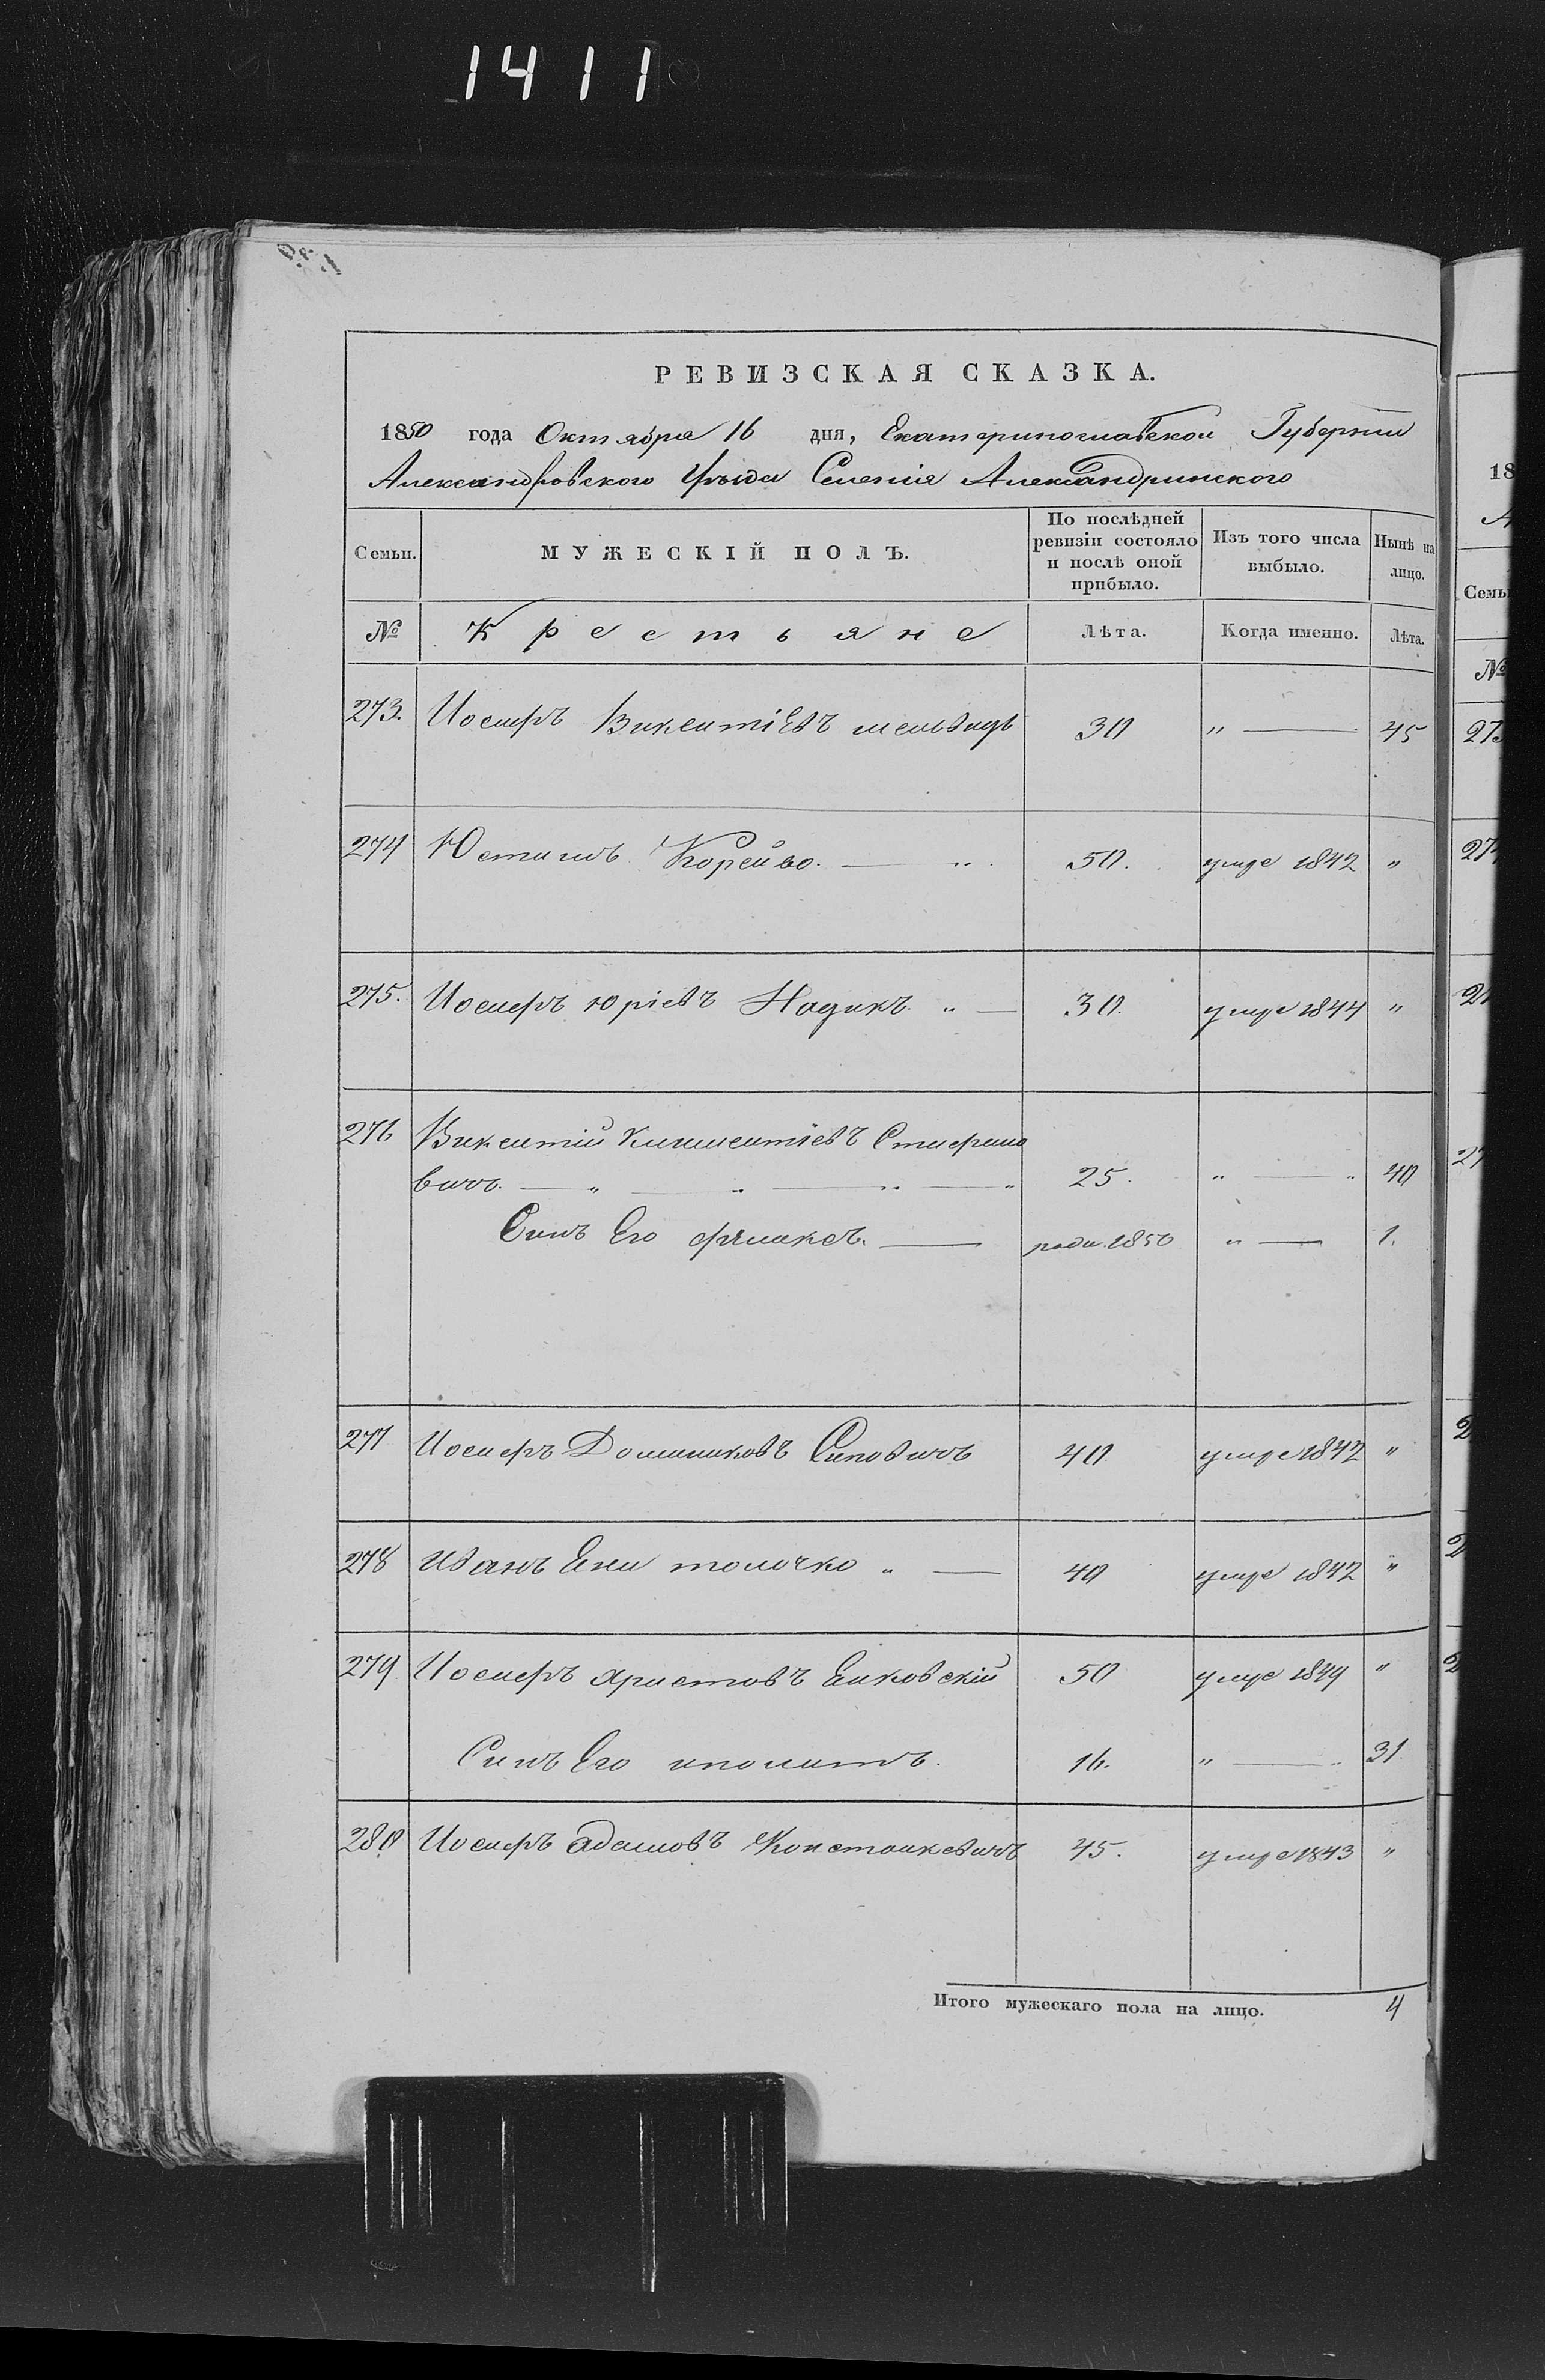 1411
РЕВИЗСКАЯ СКАЗКА.
1850 года Октября 16 дня, Екатеринославской Губернии
Александровского Уѣзда Селенія Александринского
Семьи. МУЖЕСКІЙ ПОЛЪ. По послѣдней ревизіи состояло и послѣ оной прибыло. Изъ того числа выбыло. Нынѣ на лицо.
№ Крестьяне Лѣта. Когда именно. Лѣта.
273. Иосифъ Викентіевъ 30 " — 45
274 Юстинъ Корейво. — " 50. умре 1842 "
275. Иосифъ юріевъ " — 30. умре 1844 "
276 Викентій Климентіевъ Стефано
вичъ. — " — " — " — " 25. " — " 40
Сынъ Его феликсъ. — роди. 1850 " — 1.
277 Иосифъ Доминиковъ Сиповичъ 40 умре 1842 "
278 Иванъ толочко " — 40 умре 1842 "
279. Иосифъ христовъ Енковскій 50 умре 1849 "
Сынъ Его иполитъ. 16. " — " 31.
280 Иосифъ адамовъ Констанкевичъ 45. умре 1843 "
Итого мужескаго пола на лицо. 4